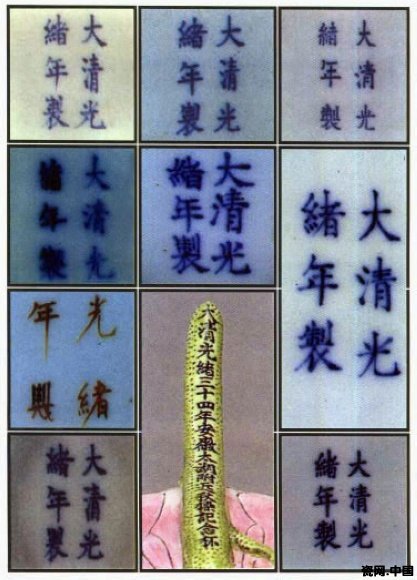 大清光
緒年製
大清光
緒年製
大清光
緒年製
大清光
緒年製
大清光
緒年製
大清光
緒年製
光緒
年製
大清光緒三十四年安徽太湖附近秋操記念杯
大清光
緒年製
大清光
緒年製
瓷网.中国